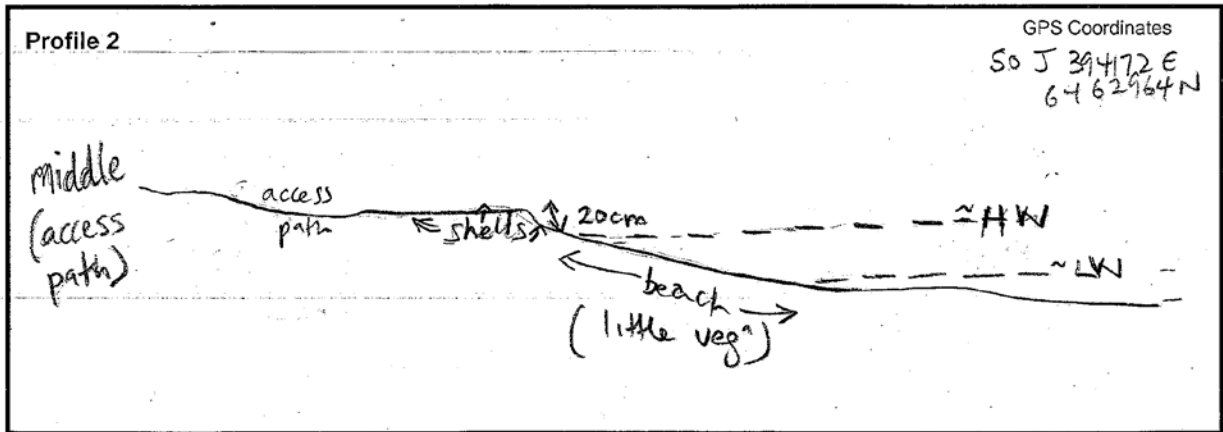 Profile 2
GPS Coordinates
50 J 394172 E
6462964 N
middle
(access
path)
access
path
shells
20cm
~HW
~LW
beach
(little vegⁿ)